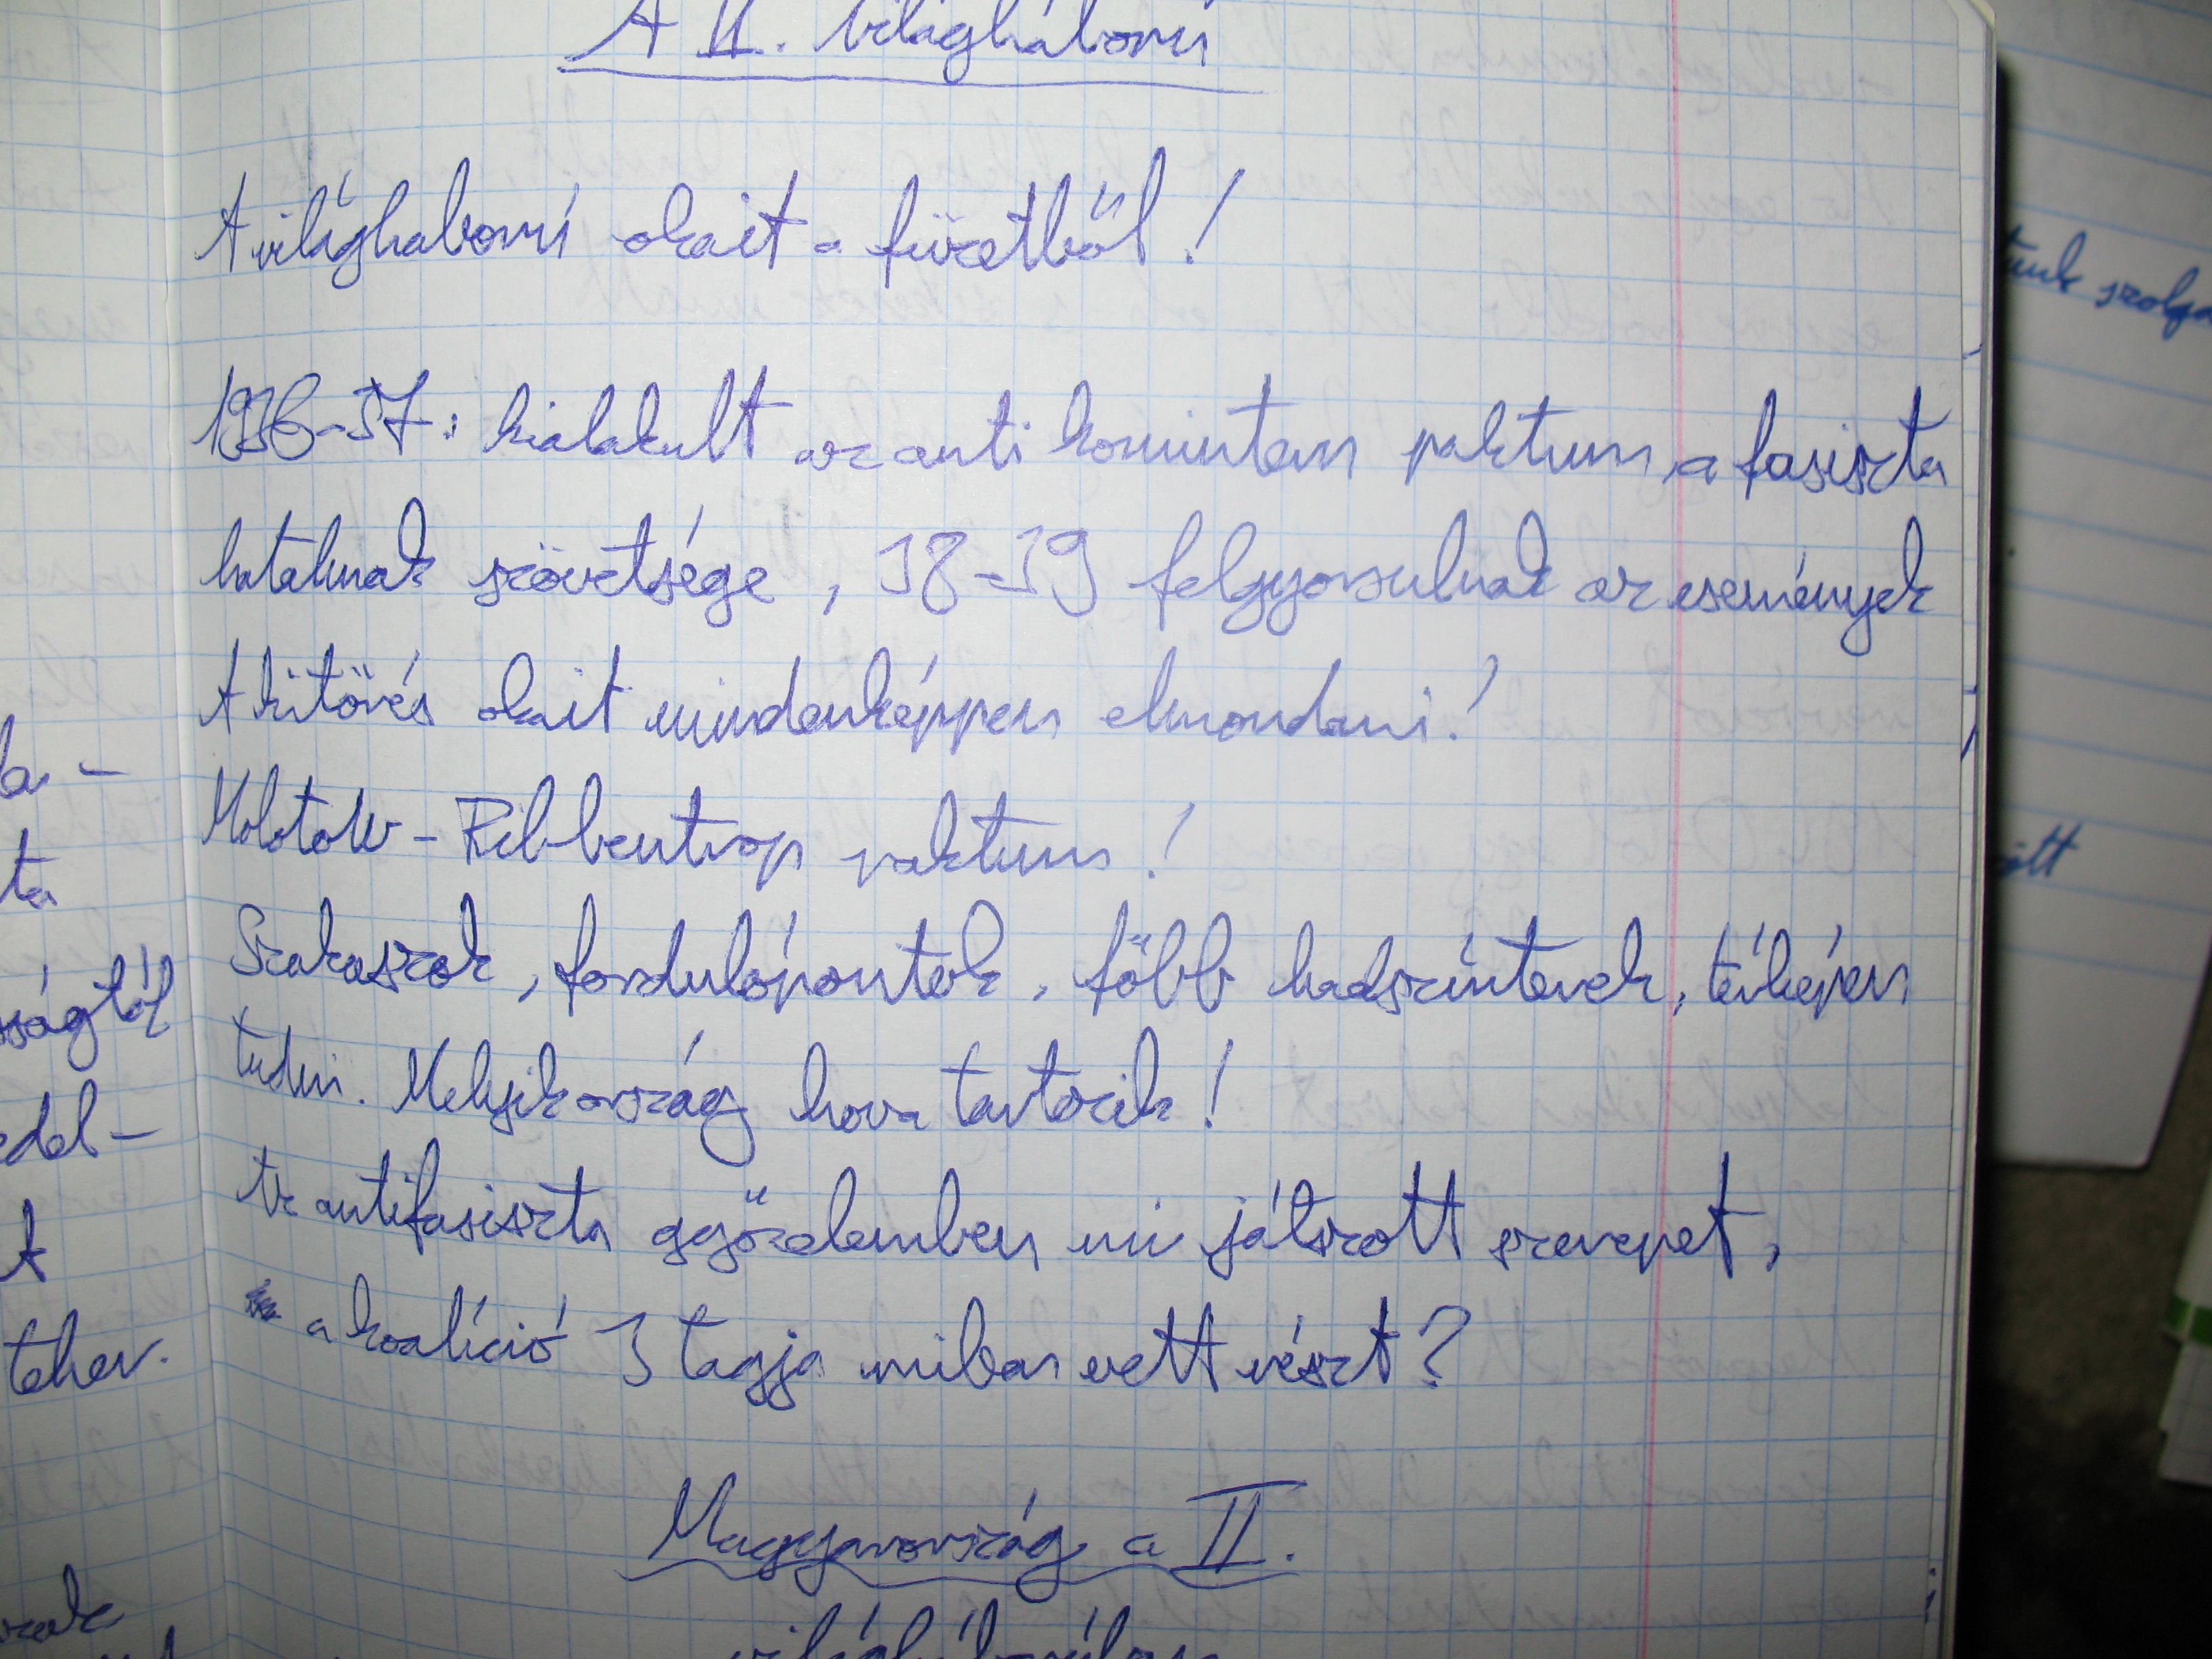 A II. világháború
A világhaború okait a füzetből!
1936-37: kialakult az anti komintern paktum, a fasiszta
hatalmak szövetsége, 38-39 felgyorsulnak az események
A kitörés okait mindenképpen elmondani!
Molotow-Ribbentrop paktum!
Szakaszok, fordulópontok, főbb hadszínterek, térképen
tudni. Melyik ország hova tartozik!
Az antifasiszta győzelemben mi játszott szerepet,
a koalíció 3 tagja miban vett részt?
Magyarország a II.
világháborúban